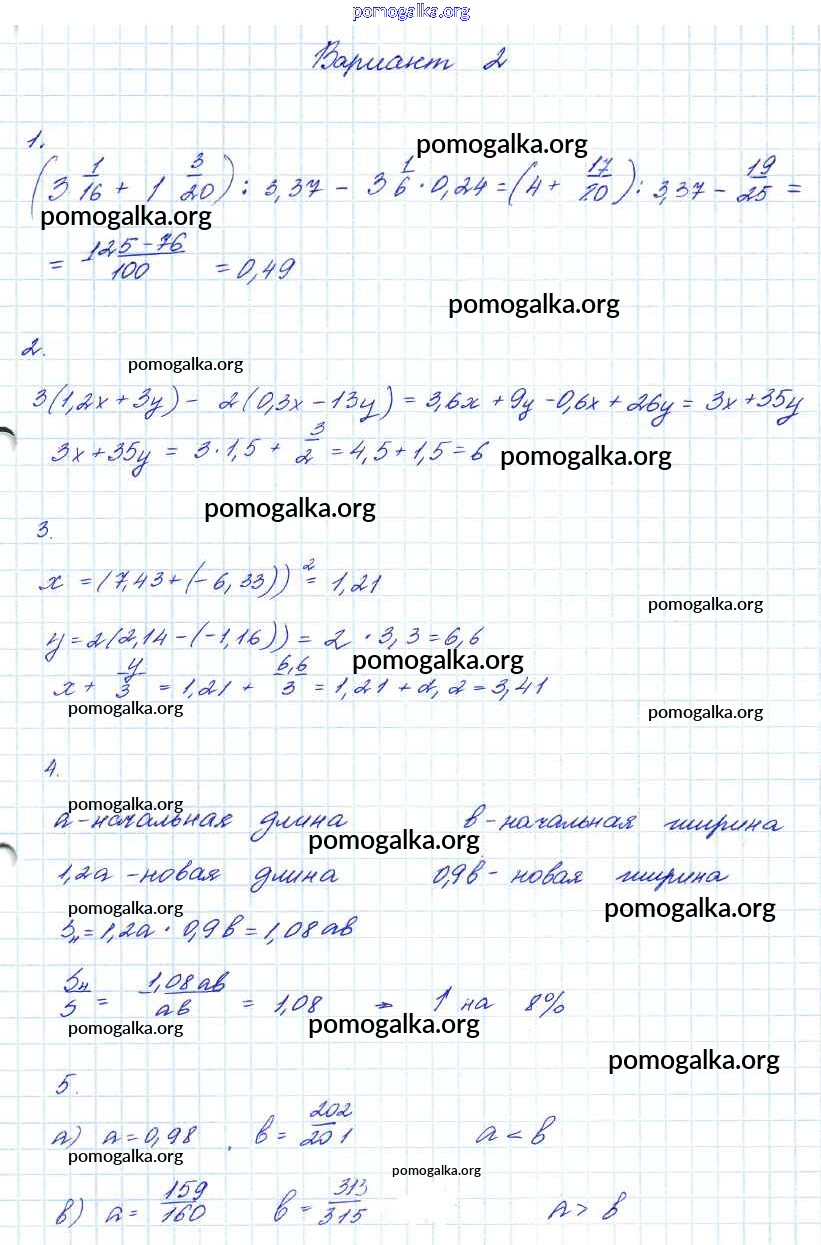 pomogalka.org
Вариант 2
1.
pomogalka.org
(3 1/16 + 1 3/20) : 3,37 - 3 1/6 · 0,24 = (4 + 17/20) : 3,37 - 19/25 =
pomogalka.org
= 125-76/100 = 0,49
pomogalka.org
2.
pomogalka.org
3(1,2x + 3y) - 2(0,3x - 13y) = 3,6x + 9y - 0,6x + 26y = 3x + 35y
3x + 35y = 3·1,5 + 3/2 = 4,5 + 1,5 = 6 pomogalka.org
pomogalka.org
3.
x = (7,43 + (-6,33))² = 1,21
pomogalka.org
y = 2(2,14 - (-1,16)) = 2 · 3,3 = 6,6
pomogalka.org
x + y/3 = 1,21 + 6,6/3 = 1,21 + 2,2 = 3,41
pomogalka.org pomogalka.org
4.
pomogalka.org
a - начальная длина в - начальная ширина
pomogalka.org
1,2a - новая длина 0,9в - новая ширина
pomogalka.org pomogalka.org
Sн = 1,2a · 0,9в = 1,08 ав
Sн/S = 1,08 ав/ав = 1,08 → ↑ на 8%
pomogalka.org pomogalka.org
pomogalka.org
5.
а) a = 0,98 , в = 202/201 a < в
pomogalka.org
pomogalka.org
в) a = 159/160 в = 313/315 a > в